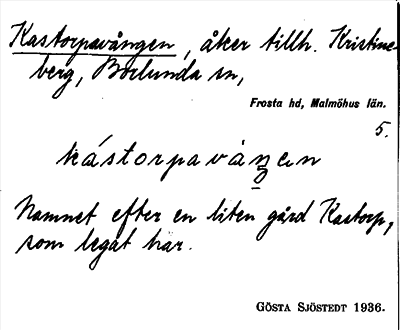 Kastorpavången, åker tillh. Kristine-
berg, Borlunda sn,
Frosta hd, Malmöhus län.
5.
kástorpavàŋen
Namnet efter en liten gård Kastorp,
som legat här.
GÖSTA SJÖSTEDT 1936.